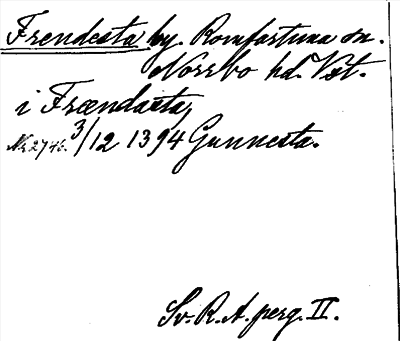 Frendesta by Romfartuna sn.
Norrbo hd. Vstl.
i Frændasta
Nr 2746. 3/12 1394 Gunnesta.
Sv. R. A. perg. II.